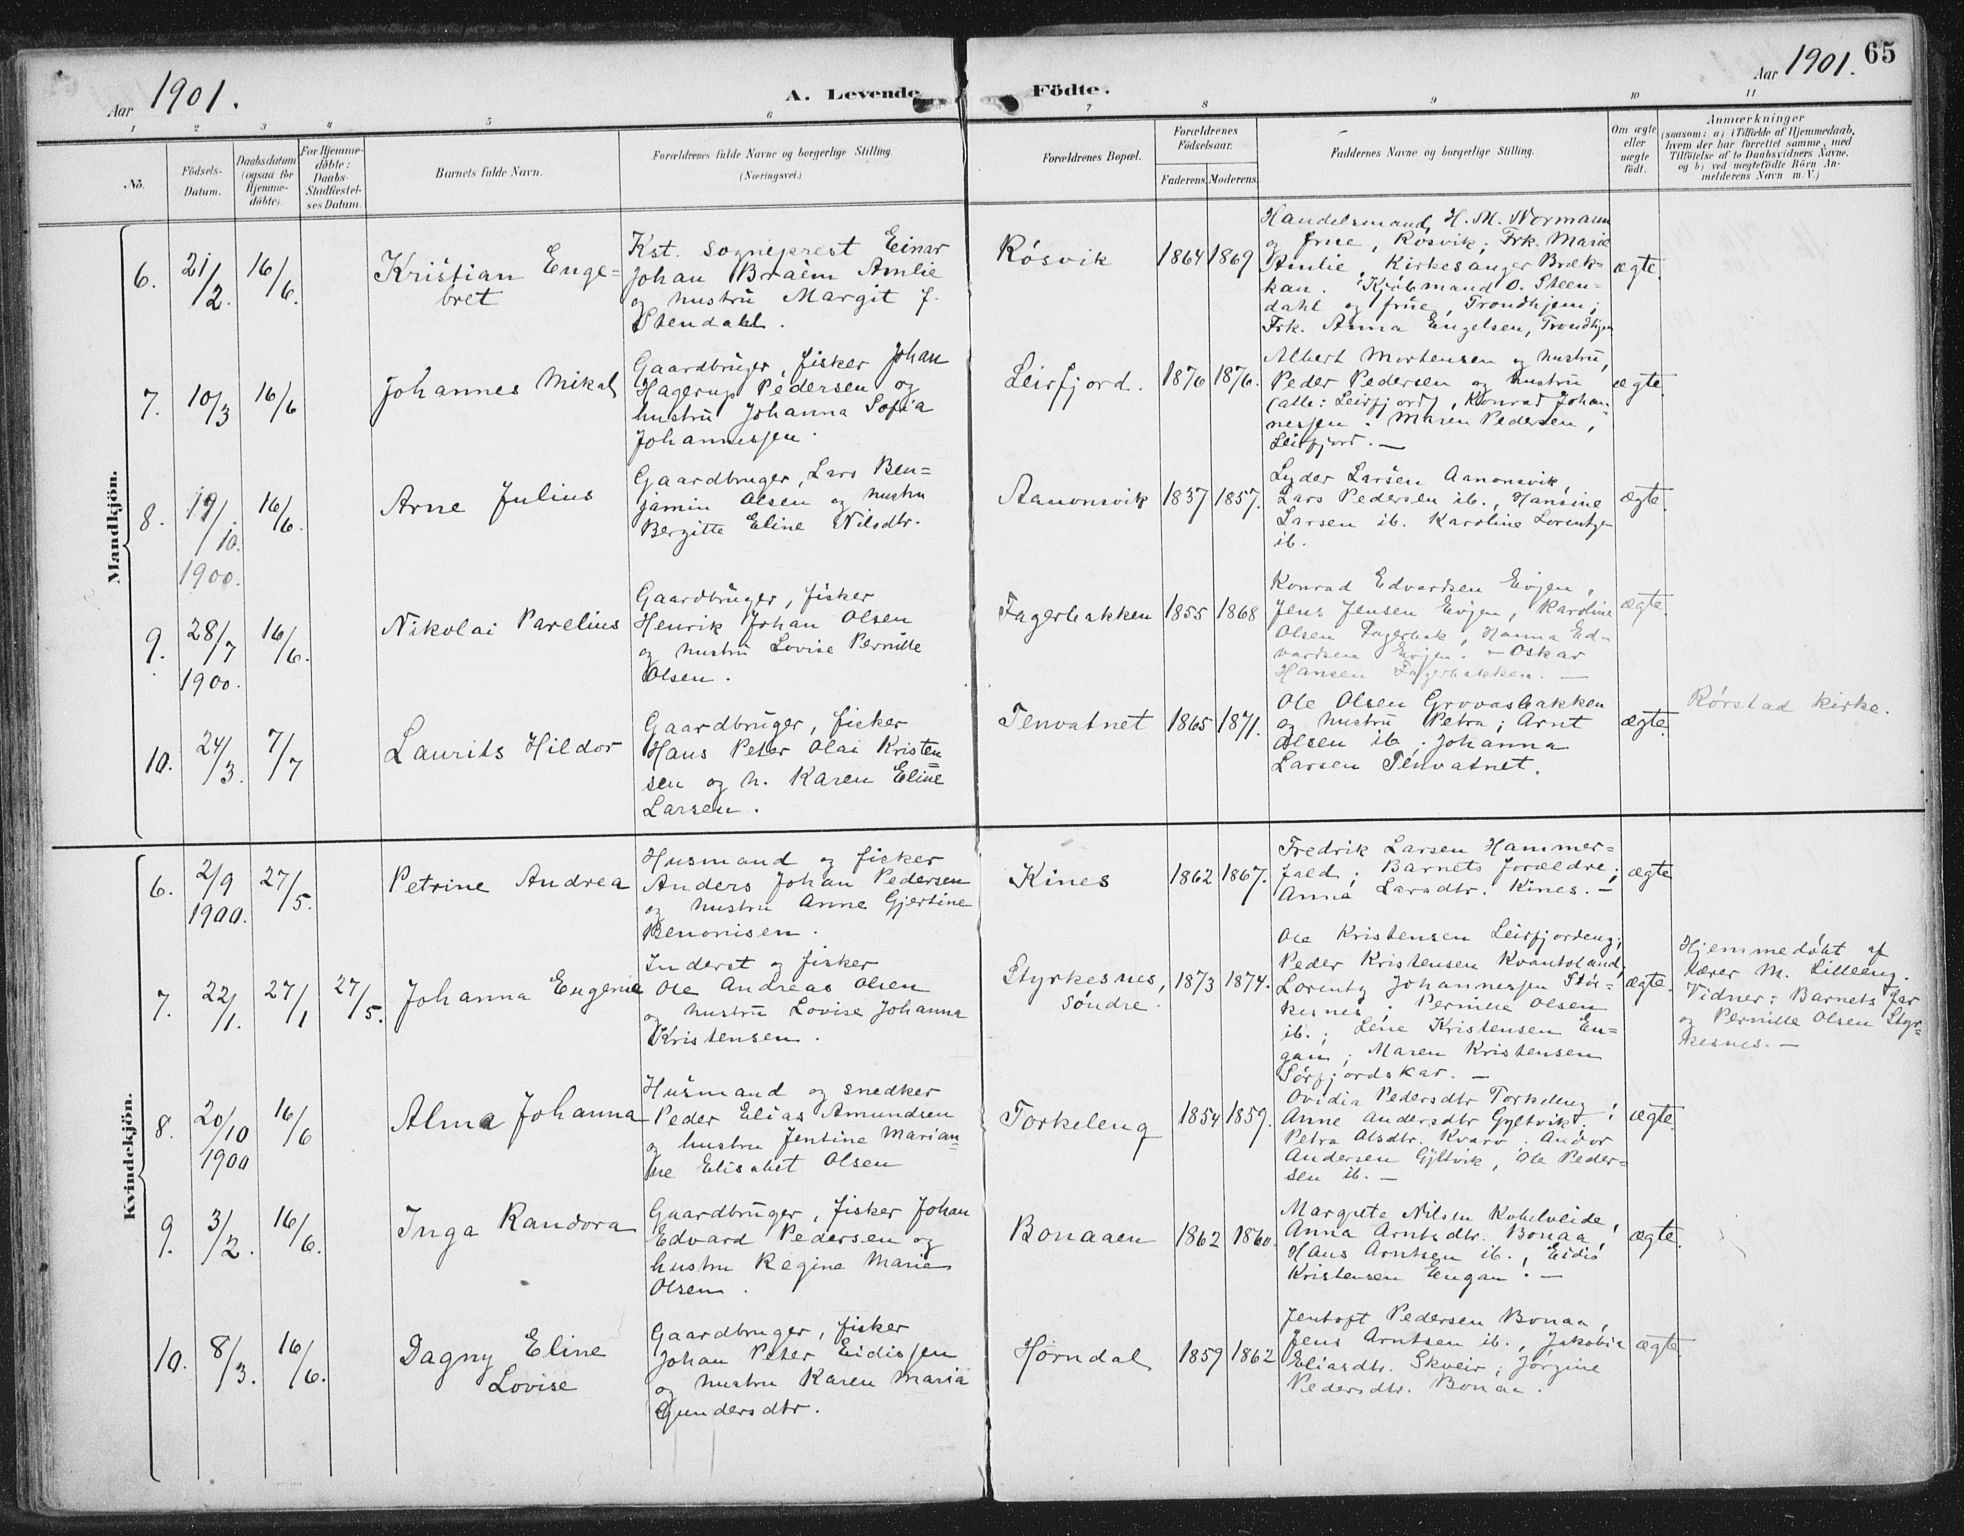 Aar 1901.
A. Levende Födte.
Aar 1901. 65
1 2 3 4 5 6 7 8 9 10 11
No.
Födsels-
Datum.
Daabsdatum
(ogsaa for
Hjemme-
döbte).
For Hjemme-
döbte:
Daabs-
Stadfæstel-
ses Datum.
Barnets fulde Navn.
Forældrenes fulde Navne og borgerlige Stilling.
(Næringsvei.)
Forældrenes Bopæl.
Forældrenes
Födselsaar.
Faderens. Moderens.
Faddernes Navne og borgerlige Stilling.
Om ægte
eller
uægte
födt.
Anmærkninger
(saasom: a) i Tilfælde af Hjemmedaab,
hvem der har forrettet samme, med
Tilföielse af to Daabsvidners Navne.
og b) ved uægtefödte Börn An-
melderens Navn m. V.)
Mandkjön.
6. 21/2. 16/6.
Kristian Enge-
bret
Kst. sogneprest Einar
Johan Braëm Amlie
og hustru Margit f.
Stendahl.
Rósvik 1864 1869
Handelsmand H. M. Normann
og frue, Rósvik; Frk. Marie
Amlie, Kirkesanger Bræk-
kan. Kjöbmand O. Steen-
dahl og frue, Trondhjem;
Frk. Anna Engelsen, Trondhjem
ægte.
7. 10/3 16/6
Johannes Mikal
Gaardbruger, fisker Johan
Hagerup Pedersen og
hustru Johanna Sofia
Johannessen.
Leirfjord. 1876 1876.
Albert Mortensen og hustru,
Peder Pedersen og hustru
(alle: Leirfjord), Konrad Johan-
nessen. Maren Pedersen,
Leirfjord. —
ægte.
8. 19/10. 1900. 16/6.
Arne Julius
Gaardbruger, Lars Ben-
jamin Olsen og hustru
Bergitte Eline Nilsdtr.
Aanonsvik 1837 1857.
Lyder Larsen Aanonsvik,
Lars Pedersen ib., Hansine
Larsen ib. Karoline Lorentze
ib.
ægte.
9. 28/7 1900. 16/6.
Nikolai Parelius
Gaardbruger, fisker
Henrik Johan Olsen
og hustru Lovise Pernille
Olsen.
Fagerbakken 1855 1868
Konrad Edvardsen Evjen,
Jens Jensen Evjen, Karoline
Olsen Fagerbak, Hanna Ed-
vardsen Evjen. - Oskar
Hansen Fagerbakken. —
ægte.
10. 24/3. 7/7
Laurits Hildor
Gaardbruger, fisker
Hans Peter Olai Kristen-
sen og h. Karen Eline
Larsen.
Tenvatnet 1865 1871.
Ole Olsen Grovasbakken
og hustru Petra; Arnt
Olsen ib.; Johanna
Larsen Tenvatnet.
ægte.
Rørstad kirke.
Kvindekjön.
6. 2/9 1900. 27/5.
Petrine Andrea
Husmand og fisker
Anders Johan Pedersen
og hustru Anne Gjertine
Benonisen.
Kines 1862 1867.
Fredrik Larsen Hammer-
fald; Barnets forældre;
Anna Larsdtr. Kines. —
ægte
7. 22/1. 27/1 27/5.
Johanna Eugenie
Inderst og fisker
Ole Andreas Olsen
og hustru Lovise Johanna
Kristensen.
Styrkesnes,
Söndre.
1873 1874.
Ole Kristensen Leirfjordeng,
Peder Kristensen Kvantoland,
Lorentz Johannessen Stör-
kesnes; Pernille Olsen
ib.; Lene Kristensen En-
gan; Maren Kristensen
Sörfjordskar. —
ægte.
Hjemmedöbt af
lærer M. Lilleeng.
Vidner: Barnets far
og Pernille Olsen Styr-
kesnes. —
8. 20/10 1900 16/6
Alma Johanna
Husmand og snedker
Peder Elias Amundsen
og hustru Jentine Marian-
ne Elisabet Olsen
Torkeleng 1854 1859.
Ovidia Pedersdtr Torkeleng;
Anne Andersdtr Gyltvik.
Petra Olsdtr. Kvarv. Andor
Andersen Gyltvik, Ole Peder-
sen ib. —
ægte.
9. 3/2. 16/6.
Inga Randora
Gaardbruger, fisker Johan
Edvard Pedersen og
hustru Regine Marie
Olsen.
Bonaaen 1862 1860.
Margrete Nilsen Kobelveide,
Anna Arntsdtr. Bonaa,
Hans Arntsen ib., Eidis
Kristensen Engan. —
ægte.
10. 8/3. 16/6.
Dagny Eline
Lovise
Gaardbruger, fisker
Johan Peter Eidissen
og hustru Karen Maria
Gundersdtr.
Horndal 1859 1862
Jentoft Pedersen Bonaa,
Jens Arntsen ib., Jakobia
Eliasdtr. Skveir; Jörgine
Pedersdtr. Bonaa.
ægte